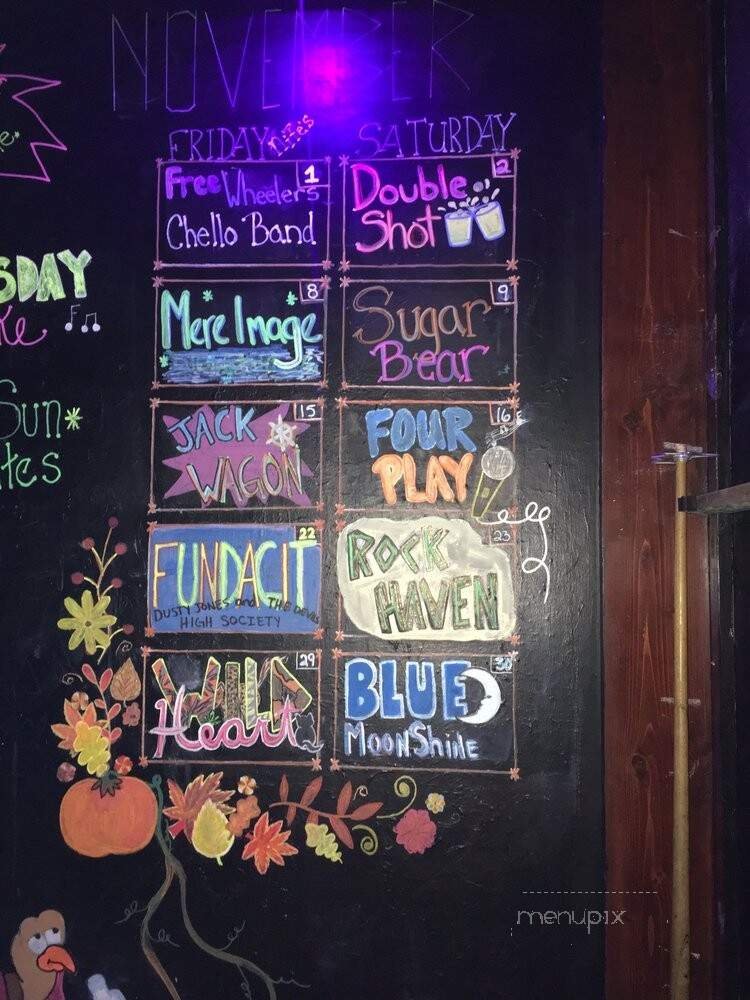 NOVEMBER
FRIDAY NITES SATURDAY
1
Free Wheelers
Chello Band
2
Double
Shot
8
Mere Image
9
Sugar
Bear
15
JACK
WAGON
16
FOUR
PLAY
22
FUNDACIT
DUSTY JONES and THE DEVILS
HIGH SOCIETY
23
ROCK
HAVEN
29
WILD
Heart
30
BLUE
MOONSHINE
SDAY
ke
Sun
tes
menupix